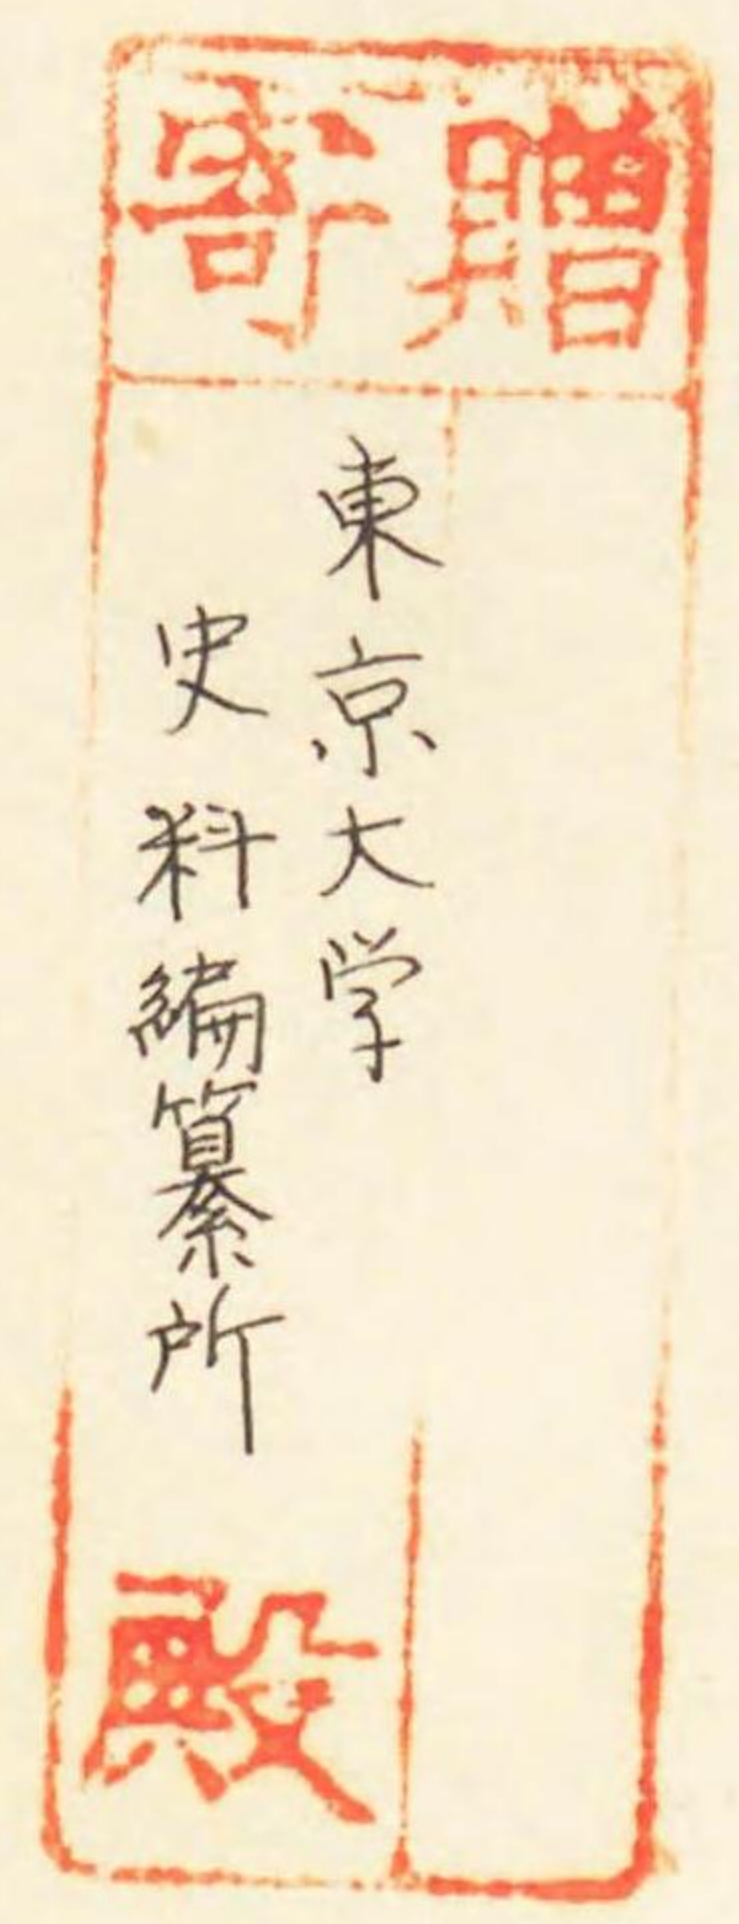 贈寄
東京大学
史料編纂所
殿